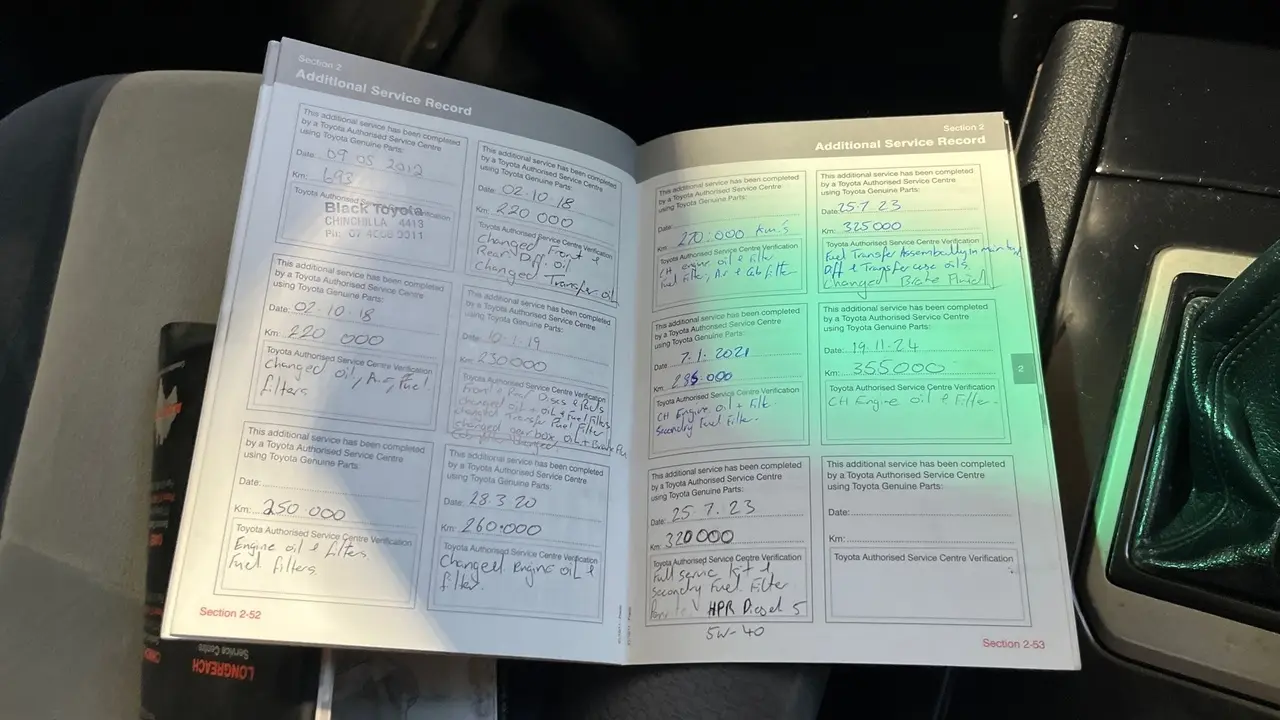 Section 2
Additional Service Record
This additional service has been completed
by a Toyota Authorised Service Centre
using Toyota Genuine Parts:
Date: 09 05 2012
Km: 693
Toyota Authorised Service Centre Verification
Black Toyota
CHINCHILLA 4413
This additional service has been completed
by a Toyota Authorised Service Centre
using Toyota Genuine Parts:
Date: 02.10.18
Km: 220 000
Toyota Authorised Service Centre Verification
Changed Front &
Rear Diff oil
changed Transfer oil
This additional service has been completed
by a Toyota Authorised Service Centre
using Toyota Genuine Parts:
Date: 02.10.18
Km: 220 000
Toyota Authorised Service Centre Verification
Changed oil, Air, Fuel
filters
This additional service has been completed
by a Toyota Authorised Service Centre
using Toyota Genuine Parts:
Date: 10.1.19
Km: 230000
Toyota Authorised Service Centre Verification
Front & Rear Discs & Pads
changed oil + oil & Fuel Filters
changed Transfer Fuel Filter
changed gear box oil + Brake Flu
This additional service has been completed
by a Toyota Authorised Service Centre
using Toyota Genuine Parts:
Date:
Km: 250 000
Toyota Authorised Service Centre Verification
Engine oil & filters
Fuel Filters
This additional service has been completed
by a Toyota Authorised Service Centre
using Toyota Genuine Parts:
Date: 28.3.20
Km: 260.000
Toyota Authorised Service Centre Verification
Changed engine oil &
filter.
Section 2-52
Section 2
Additional Service Record
This additional service has been completed
by a Toyota Authorised Service Centre
using Toyota Genuine Parts:
Date:
Km: 270.000 km's
Toyota Authorised Service Centre Verification
CH engine oil & filter
Fuel filter, Air & Cab filter
This additional service has been completed
by a Toyota Authorised Service Centre
using Toyota Genuine Parts:
Date: 25.7.23
Km: 325000
Toyota Authorised Service Centre Verification
Fuel Transfer
Diff & Transfer case oils
Changed Brake Fluid
This additional service has been completed
by a Toyota Authorised Service Centre
using Toyota Genuine Parts:
Date: 7.1.2021
Km: 285.000
Toyota Authorised Service Centre Verification
CH Engine oil + Filte
Secondry Fuel Filter
This additional service has been completed
by a Toyota Authorised Service Centre
using Toyota Genuine Parts:
Date: 19.11.24
Km: 355000
Toyota Authorised Service Centre Verification
CH Engine oil & Filter.
This additional service has been completed
by a Toyota Authorised Service Centre
using Toyota Genuine Parts:
Date: 25.7.23
Km: 320000
Toyota Authorised Service Centre Verification
Full service kit &
Secondry Fuel Filter
HPR Diesel 5
5W-40
This additional service has been completed
by a Toyota Authorised Service Centre
using Toyota Genuine Parts:
Date:
Km:
Toyota Authorised Service Centre Verification
Section 2-53
2
LONGREACH
Service Centre